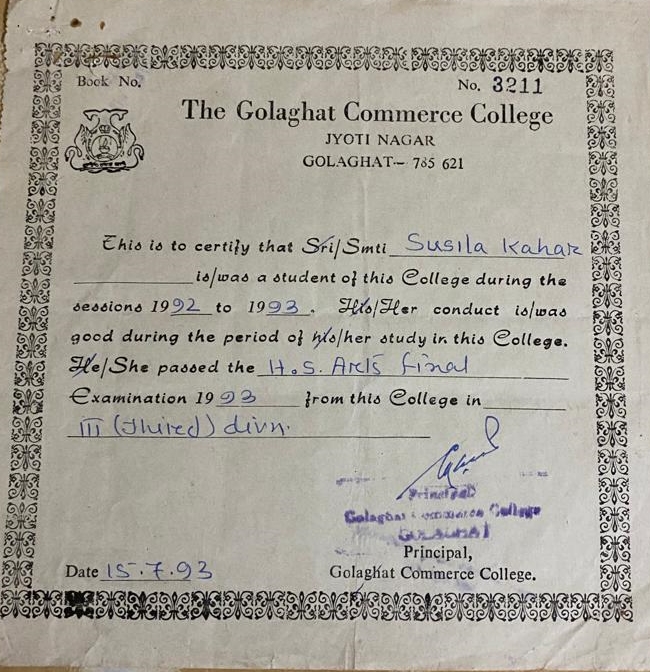 Book No.
No. 3211
The Golaghat Commerce College
JYOTI NAGAR
GOLAGHAT- 785 621
This is to certify that Sri/Smti Susila Kahar
is/was a student of this College during the
sessions 1992 to 1993. His/Her conduct is/was
good during the period of his/her study in this College.
He/She passed the H.S. Arts final
Examination 1993 from this College in
III (Third) divn.
Principal
Golaghat Commerce College
GOLAGHAT
Principal,
Date 15.7.93
Golaghat Commerce College.